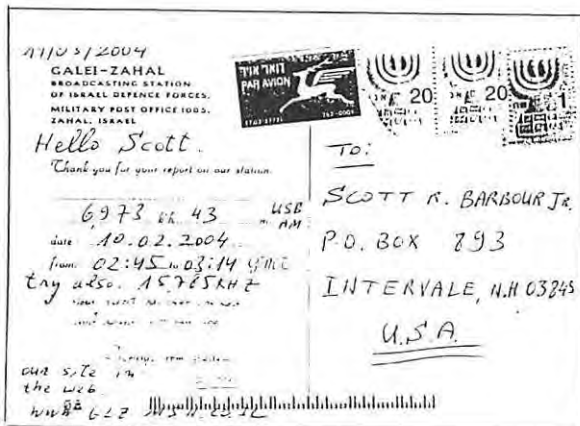 11/03/2004
GALEI-ZAHAL
BROADCASTING STATION
OF ISRAEL DEFENCE FORCES,
MILITARY POST OFFICE 1005,
ZAHAL, ISRAEL
Hello Scott.
Thank you for your report on our station.
6,973 43 USB
AM
date 10.02.2004
from 02:45 to 03:14 GMT
try also. 15785KHZ
our site in
the web
דואר אויר
PAR AVION
20
20
1
TO:
SCOTT R. BARBOUR JR.
P.O. BOX 893
INTERVALE, N.H 03845
U.S.A.